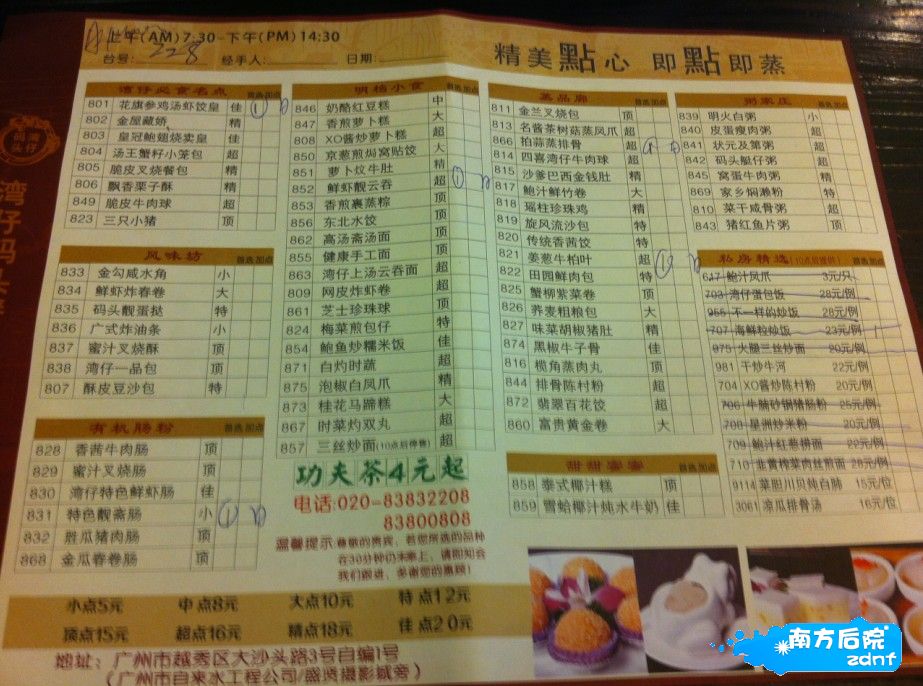 上午(AM)7:30-下午(PM)14:30
台号: 228 经手人: 日期:
精美點心 即點即蒸
湾仔必食名点
801 花旗参鸡汤虾饺皇 佳
802 金屋藏娇 精
803 皇冠鲍翅烧卖皇 佳
804 汤王蟹籽小笼包 超
805 脆皮叉烧餐包 精
806 飘香栗子酥 精
849 脆皮牛肉球 超
823 三只小猪 顶
风味坊
833 金勾咸水角 小
834 鲜虾炸春卷 大
835 码头靓蛋挞 特
836 广式炸油条 小
837 蜜汁叉烧酥 顶
838 湾仔一品包 顶
807 酥皮豆沙包 特
有机肠粉
828 香茜牛肉肠 顶
829 蜜汁叉烧肠 顶
830 湾仔特色鲜虾肠 佳
831 特色靓斋肠 小
832 胜瓜猪肉肠 顶
868 金瓜春卷肠 顶
明档小食
846 奶酪红豆糕 中
847 香煎萝卜糕 大
808 XO酱炒萝卜糕 超
850 京葱煎焗窝贴饺 大
851 萝卜炆牛肚 精
852 鲜虾靓云吞 超
853 香煎裹蒸粽 顶
856 东北水饺 顶
862 高汤斋汤面 顶
855 健康手工面 顶
863 湾仔上汤云吞面 超
809 网皮炸虾卷 超
861 芝士珍珠球 顶
824 梅菜煎包仔 特
854 鲍鱼炒糯米饭 佳
871 白灼时蔬 超
875 泡椒白凤爪 精
873 桂花马蹄糕 大
867 时菜灼双丸 超
857 三丝炒面(10点后停售) 超
功夫茶4元起
电话:020-83832208
83800808
温馨提示:尊敬的贵宾,若您所选的品种
在30分钟仍未奉上,请即知会
我们跟进,多谢您的惠顾!
蒸品廊
811 金兰叉烧包 顶
813 名酱茶树菇蒸凤爪 超
866 拍蒜蒸排骨 超
814 四喜湾仔牛肉球 超
815 沙爹巴西金钱肚 精
817 鲍汁鲜竹卷 大
818 瑶柱珍珠鸡 精
819 旋风流沙包 特
820 传统香茜饺 特
821 姜葱牛柏叶 超
822 田园鲜肉包 特
825 蟹柳紫菜卷 顶
826 荞麦粗粮包 大
827 味菜胡椒猪肚 精
874 黑椒牛子骨 佳
816 榄角蒸肉丸 顶
844 排骨陈村粉 超
872 翡翠百花饺 超
860 富贵黄金卷 大
甜甜蜜蜜
858 泰式椰汁糕 顶
859 雪蛤椰汁炖水牛奶 佳
粥家庄
839 明火白粥 小
840 皮蛋瘦肉粥 超
841 状元及第粥 超
842 码头艇仔粥 超
845 窝蛋牛肉粥 特
869 家乡焗濑粉 特
810 菜干咸骨粥 超
843 猪红鱼片粥 顶
私房精选(10点后提供)
617 鲍汁凤爪 3元/只
703 湾仔蛋包饭 28元/例
955 不一样的炒饭 28元/例
707 海鲜粒炒饭 23元/例
975 火腿三丝炒面 20元/例
981 干炒牛河 22元/例
704 XO酱炒陈村粉 20元/例
706 牛腩砂锅猪肠粉 25元/例
708 星洲炒米粉 20元/例
709 鲍汁红葱捞面 22元/例
710 韭黄榨菜肉丝煎面 28元/例
9114 菜胆川贝炖白肺 15元/位
3061 凉瓜排骨汤 16元/位
小点5元 中点8元 大点10元 特点12元
顶点15元 超点16元 精点18元 佳点20元
地址:广州市越秀区大沙头路3号自编1号
(广州市自来水工程公司/盛贤摄影城旁)
码头湾仔
湾仔码头
南方后院
zdnf